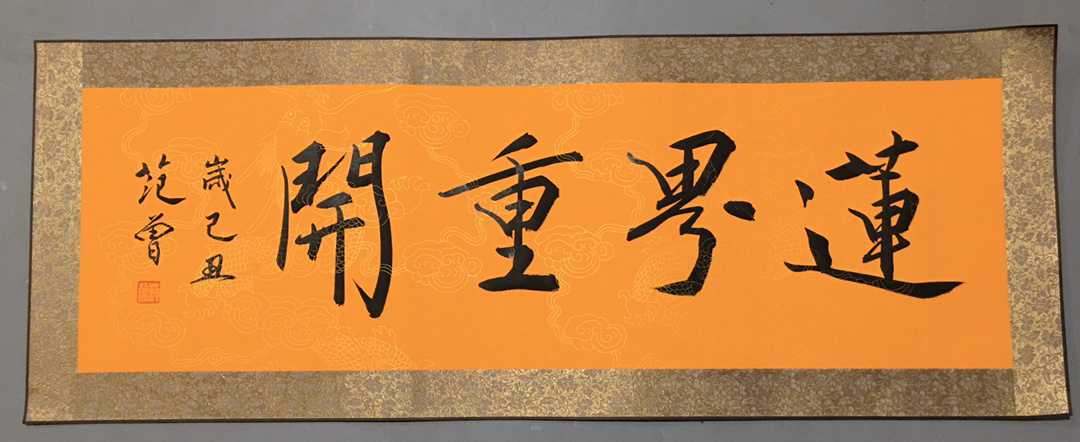 蓮界重開
歲己丑
范曾